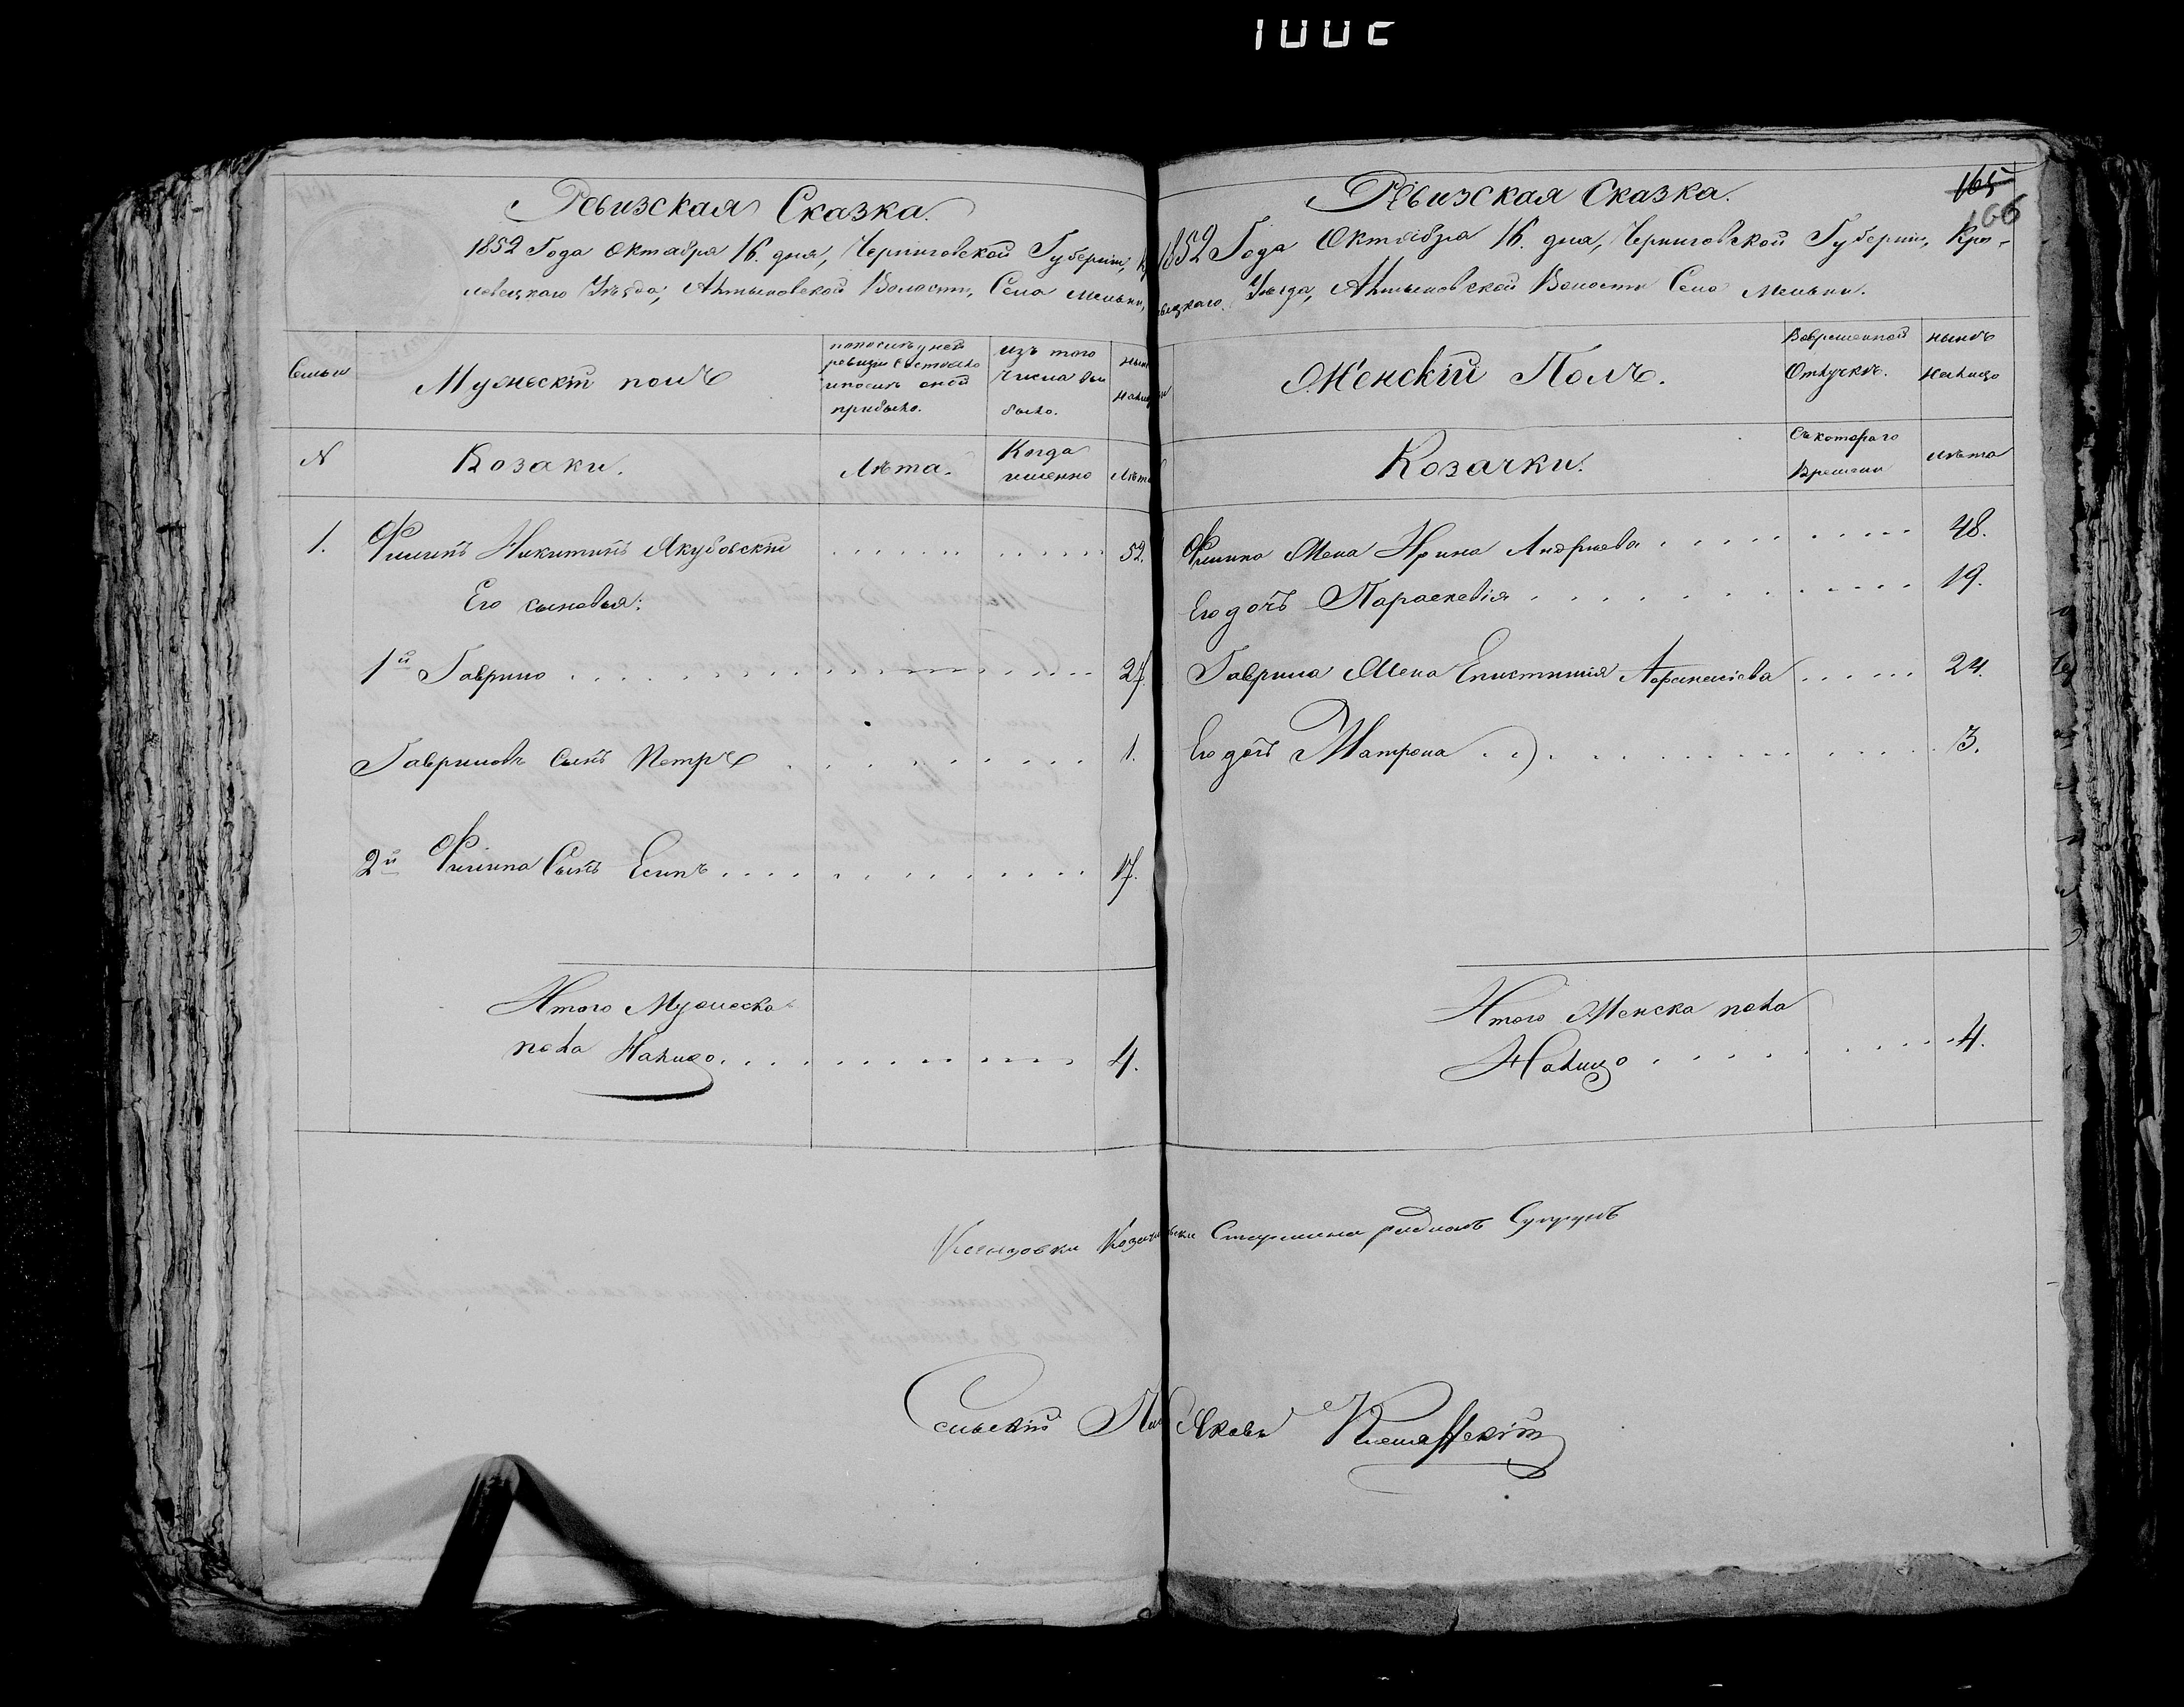 100
Ревизская Сказка.
1852 Года Октября 16. дня, Черниговской Губерніи,
левецкаго Уѣзда, Алтыновской Волости, Села Меньки,
Семьи
Мужескій полъ
по послѣдней
ревизіи состояло
и послѣ оной
прибыло.
изъ того
числа вы
было.
N
Козаки.
Лѣта.
Когда
именно
Лѣта
1. Филипъ Никитинъ Якубовскій 52.
Его сыновья:
1й Гаврило 27.
Гавриловъ Сынъ Петръ 1.
2й Филипа Сынъ Есипъ 17.
Итого Мужеска
пола Налицо 4.
Ревизская Сказка.
165
166
1852 Года Октября 16. дня, Черниговской Губерніи, Кро-
левецкаго Уѣзда, Алтыновской Волости Села Меньки.
Женскій Полъ.
Во временной
Отлучкѣ.
нынѣ
налицо
Козачки.
Съ котораго
Времени
лѣта
Филипа Жена Ирина Андріева 48.
Его дочь Параскевія 19.
Гаврила Жена Епистимія Афанасіева 24.
Его дочь Матрона 3.
Итого Женска пола
Налицо 4.
Старшина
Сельскій Яковъ